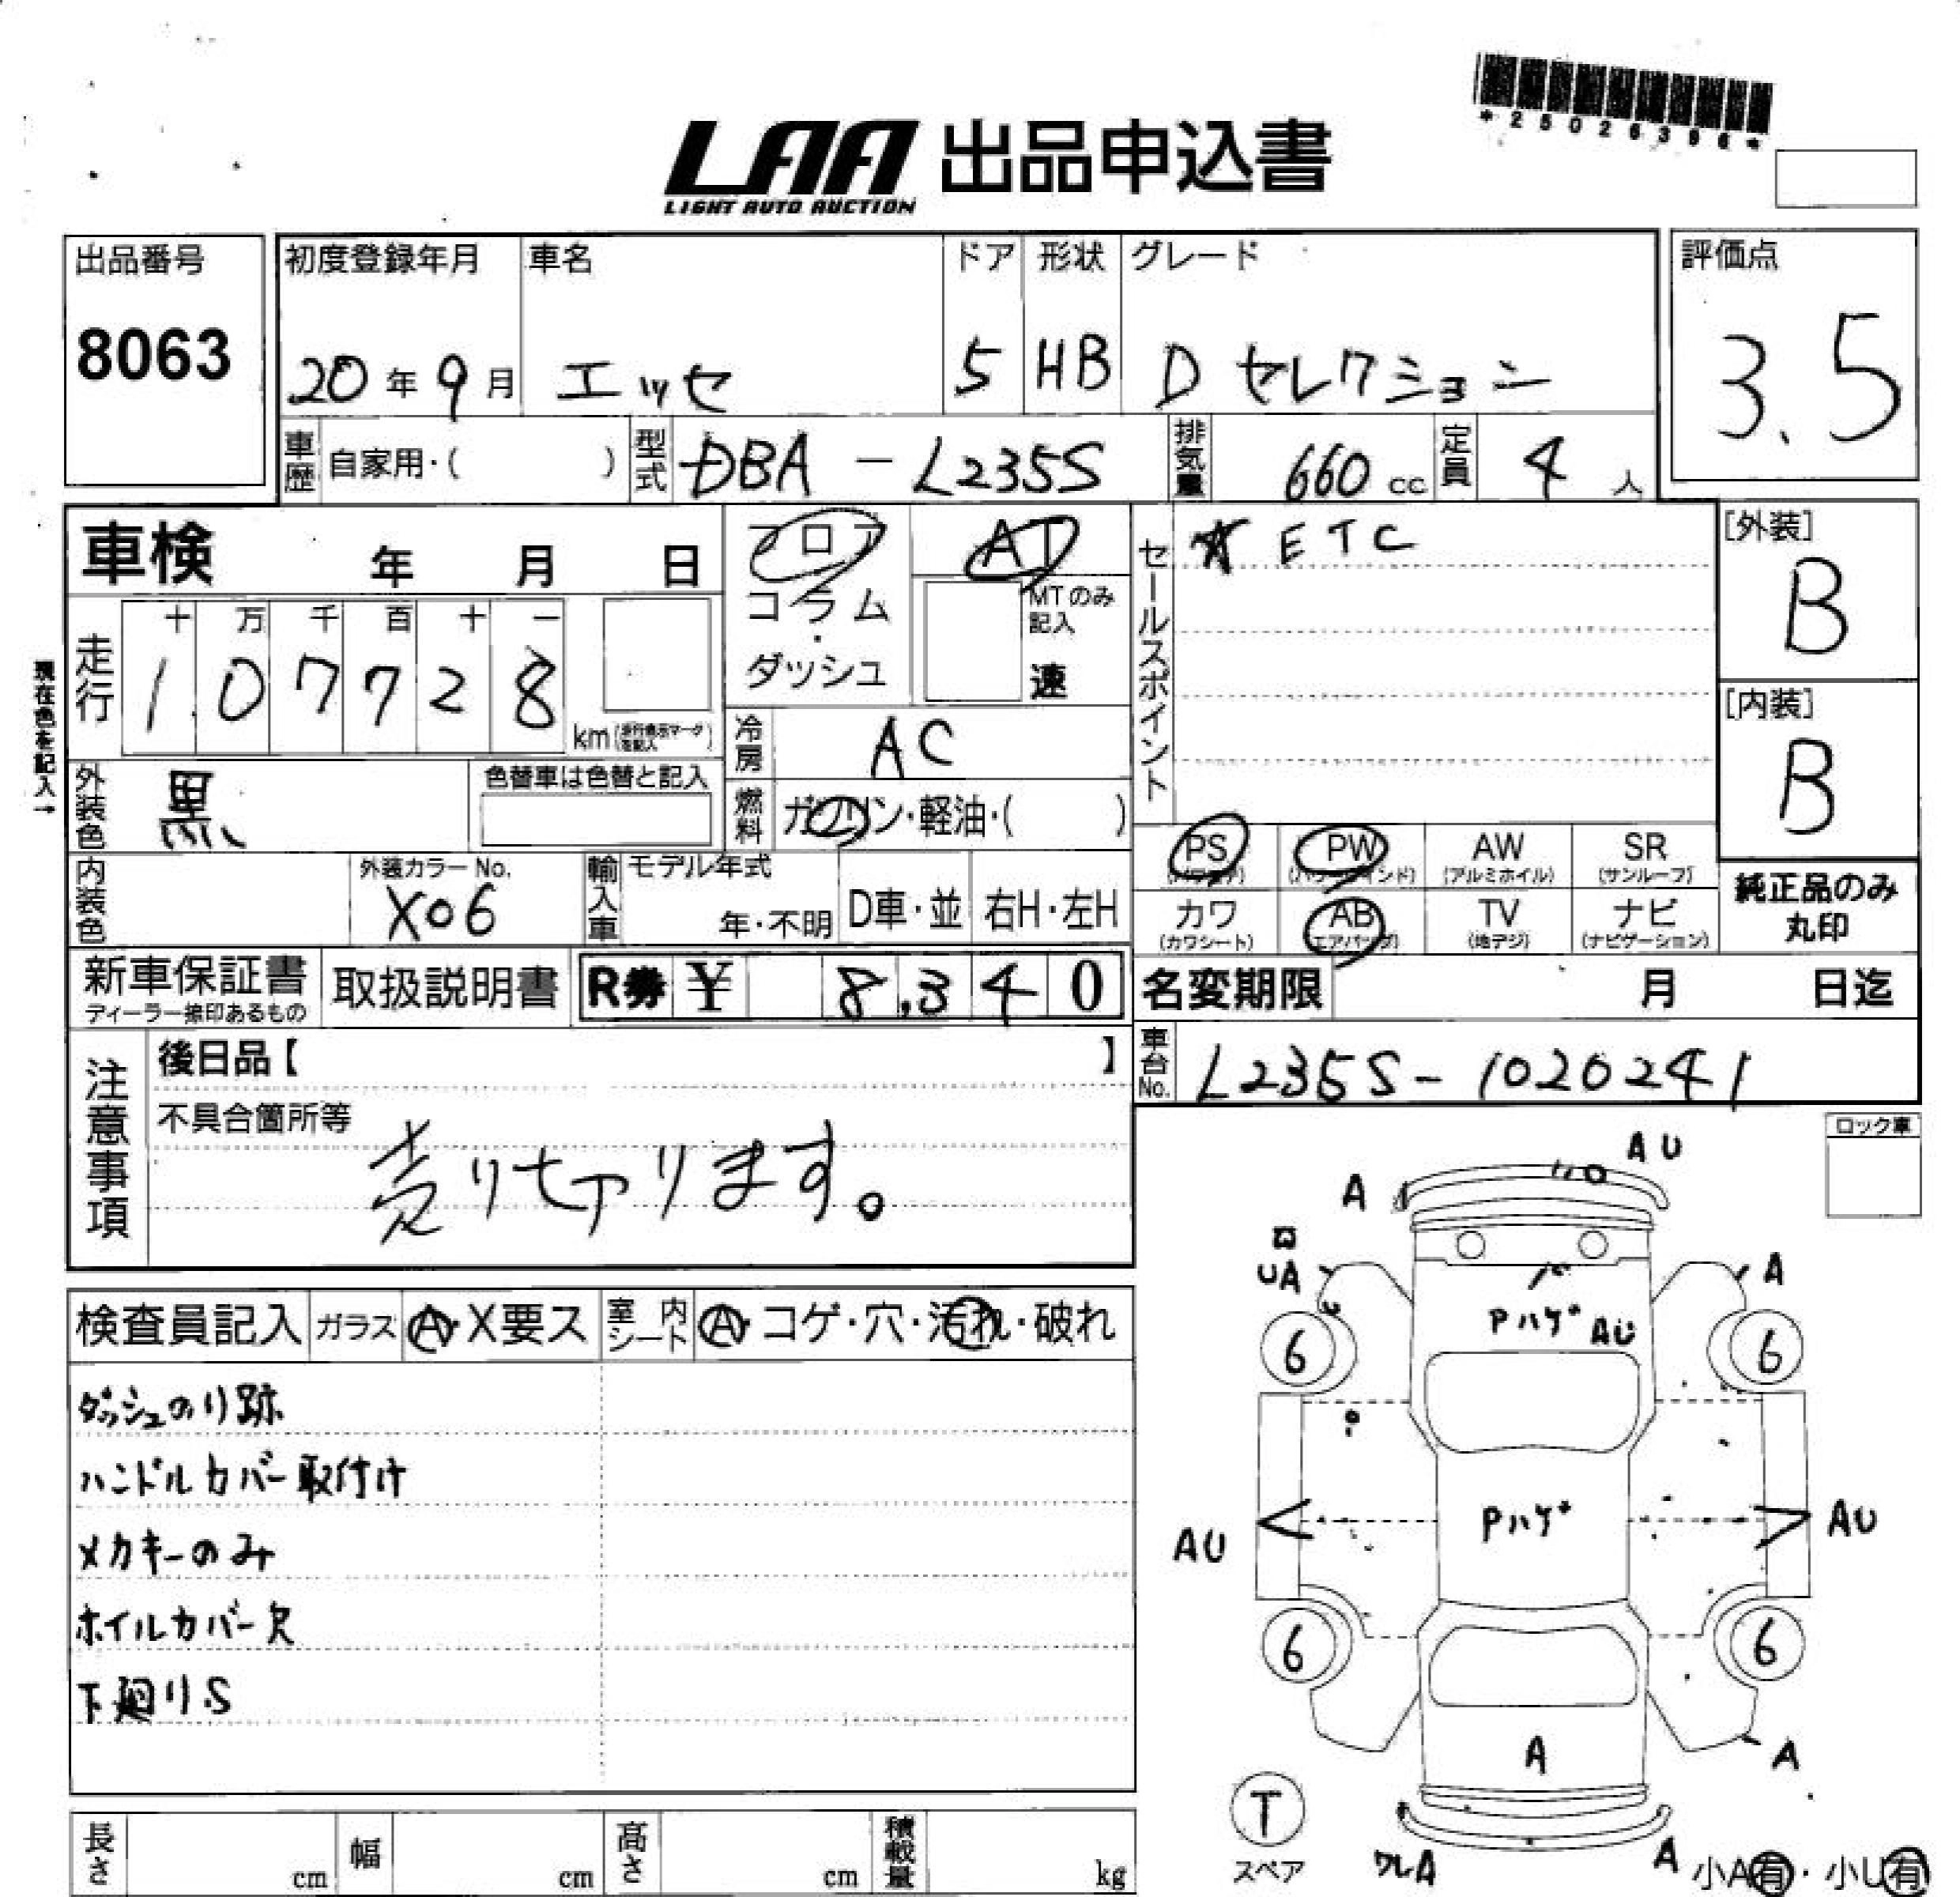 *25026396*
LAA 出品申込書
LIGHT AUTO AUCTION
出品番号
8063
初度登録年月 車名 ドア 形状 グレード
20年9月 エッセ 5 HB Dセレクション
評価点
3.5
車歴 自家用・( ) 型式 DBA-L235S 排気量 660cc 定員 4人
車検 年 月 日
フロア
コラム
・
ダッシュ
AT
MTのみ
記入
速
セールスポイント
★ETC
[外装]
B
現在色を記入→
走行 十 万 千 百 十 一
107728
km
[内装]
B
冷房 AC
外装色 黒 色替車は色替と記入
燃料 ガソリン・軽油・( )
PS PW AW SR
(アルミホイル) (サンルーフ)
カワ AB TV ナビ
(カワシート) (エアバッグ) (地デジ) (ナビゲーション)
純正品のみ
丸印
内装色 外装カラーNo.
X06
輸入車 モデル年式
年・不明 D車・並 右H・左H
新車保証書
ディーラー捺印あるもの
取扱説明書 R券 ¥ 8,340
名変期限 月 日迄
車台No. L235S-1020241
注意事項
後日品【 】
不具合箇所等
売り切ります。
ロック車
検査員記入 ガラス A・X要ス 室内シート A・コゲ・穴・汚れ・破れ
ダッシュのり跡
ハンドルカバー取付け
メカキーのみ
ホイルカバー欠
下廻りS
AU
A
UA
A
Pハゲ AU
6 6
Pハゲ
AU AU
6 6
A
A
T
スペア
ワレA
A
小A有・小U有
長さ cm 幅 cm 高さ cm 積載量 kg